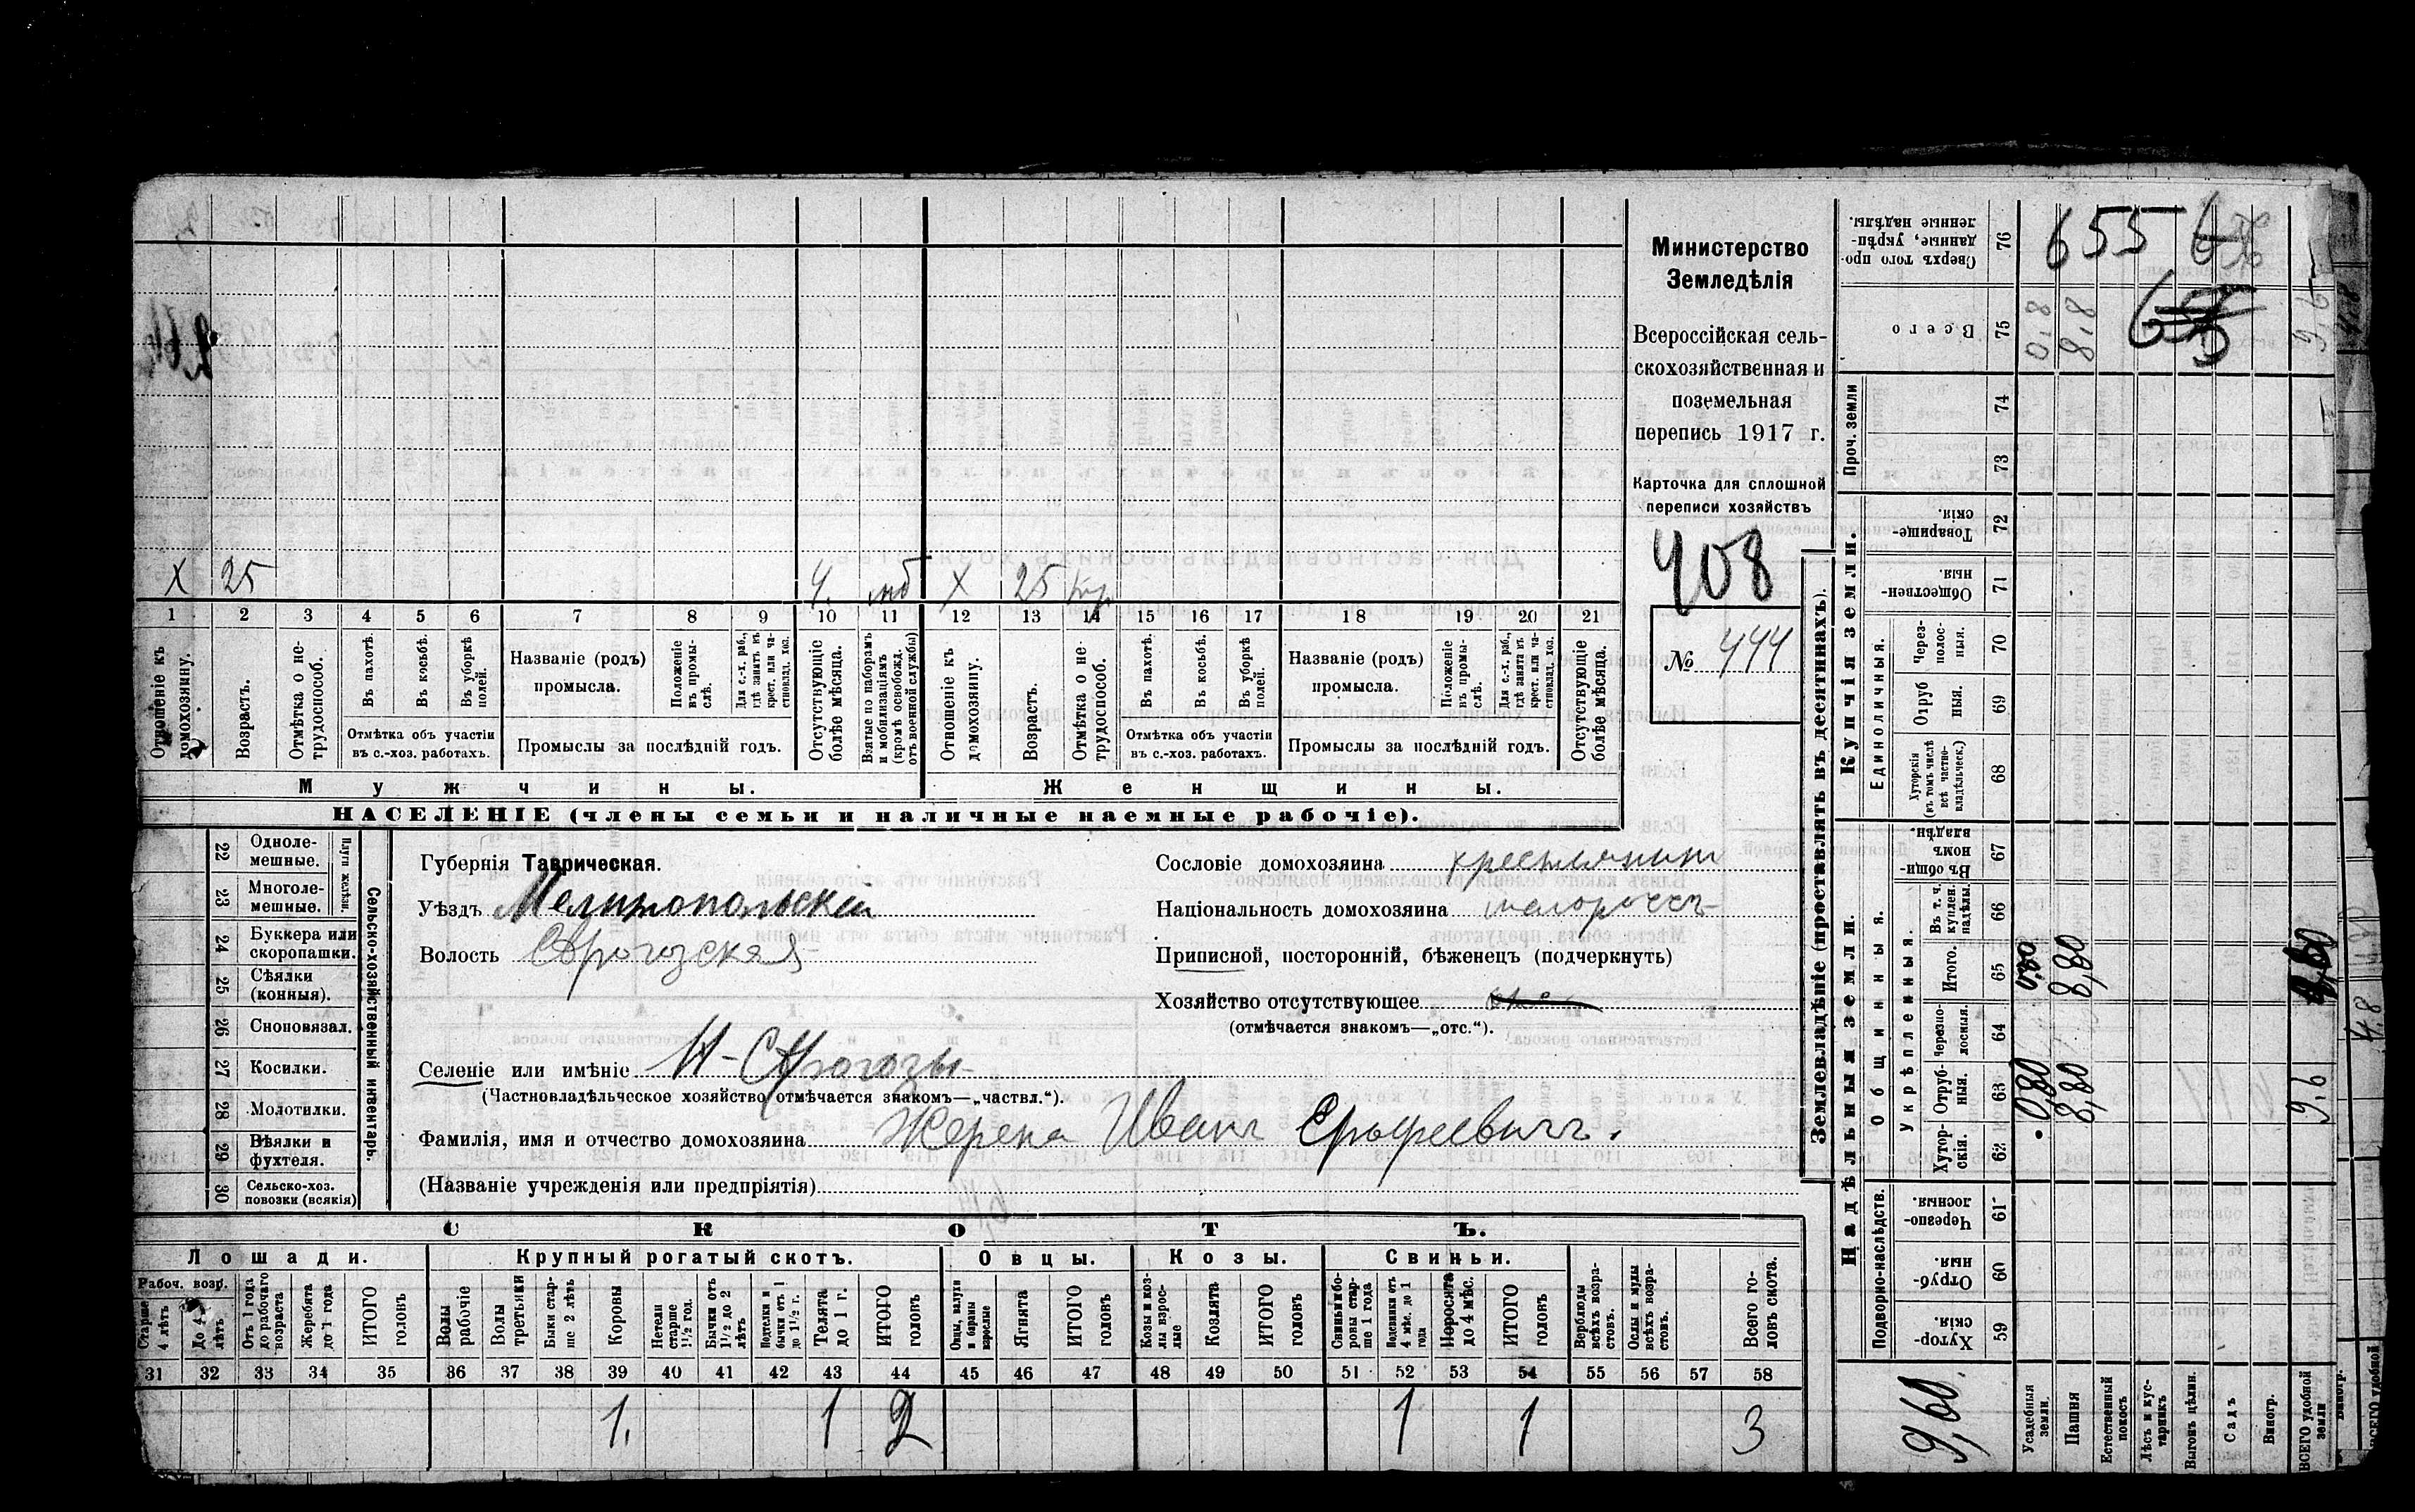 Министерство
Земледѣлія
Всероссійская сель-
скохозяйственная и
поземельная
перепись 1917 г.
Карточка для сплошной
переписи хозяйствъ
408
№ 444
X 25 мб X 25
1 2 3 4 5 6 7 8 9 10 11 12 13 14 15 16 17 18 19 20 21
Отношеніе къ домохозяину.
Возрастъ.
Отмѣтка о не-
трудоспособ.
Въ пахотѣ.
Въ косьбѣ.
Въ уборкѣ
полей.
Отмѣтка объ участіи
въ с.-хоз. работахъ.
Названіе (родъ)
промысла.
Положеніе
въ промы-
слѣ.
Для с.-х. раб.,
гдѣ занятъ въ
крест. или ча-
стновлад. хоз.
Промыслы за послѣдній годъ.
Отсутствующіе
болѣе мѣсяца.
Взятые по наборамъ
и мобилизаціямъ
(кромѣ освобожд.
отъ военной службы)
Отношеніе къ
домохозяину.
Возрастъ.
Отмѣтка о не-
трудоспособ.
Въ пахотѣ.
Въ косьбѣ.
Въ уборкѣ
полей.
Отмѣтка объ участіи
въ с.-хоз. работахъ.
Названіе (родъ)
промысла.
Положеніе
въ промы-
слѣ.
Для с.-х. раб.,
гдѣ занята въ
крест. или ча-
стновлад. хоз.
Промыслы за послѣдній годъ.
Отсутствующіе
болѣе мѣсяца.
Мужчины. Женщины.
НАСЕЛЕНІЕ (члены семьи и наличные наемные рабочіе).
Сельско-хозяйственный инвентарь.
Плуги желѣзн.
22 Одноле-
мешные.
23 Многоле-
мешные.
24 Буккера или
скоропашки.
25 Сѣялки
(конныя).
26 Сноповязал.
27 Косилки.
28 Молотилки.
29 Вѣялки и
фухтеля.
30 Сельско-хоз.
повозки (всякія)
Губернія Таврическая.
Уѣздъ Мелитопольскій
Волость
Селеніе или имѣніе
(Частновладѣльческое хозяйство отмѣчается знакомъ—„частвл.“).
Фамилія, имя и отчество домохозяина Жерепа Иванъ Ерофеевичъ.
(Названіе учрежденія или предпріятія)
Сословіе домохозяина крестьянинъ
Національность домохозяина малороссъ
Приписной, посторонній, бѣженец (подчеркнуть)
Хозяйство отсутствующее
(отмѣчается знакомъ—„отс.“).
СКОТЪ.
Лошади. Крупный рогатый скотъ. Овцы. Козы. Свиньи.
Рабоч. возр.
Старше
4 лѣтъ
До 4
лѣтъ
Отъ 1 года
до рабочаго
возраста
Жеребята
до 1 года
ИТОГО
головъ
Волы
рабочіе
Волы
третьяки
Быки стар-
ше 2 лѣтъ
Коровы
Нетели
старше
1½ год.
Бычки отъ
1½ до 2
лѣтъ
Подтелки и
бычки отъ 1
до 1½ г.
Телята
до 1 г.
ИТОГО
головъ
Овцы, валухи
и бараны
взрослые
Ягнята
ИТОГО
головъ
Козы и коз-
лы взрос-
лые
Козлята
ИТОГО
головъ
Свиньи и бо-
ровы стар-
ше 1 года
Подсвинки отъ
4 мѣс. до 1
года
Поросята
до 4 мѣс.
ИТОГО
головъ
Верблюды
всѣхъ возра-
стовъ.
Ослы и мулы
всѣхъ возра-
стовъ.
Всего го-
ловъ скота.
31 32 33 34 35 36 37 38 39 40 41 42 43 44 45 46 47 48 49 50 51 52 53 54 55 56 57 58
1. 1 2 1 1 3
Землевладѣніе (проставлять въ десятинахъ).
Надѣльныя земли. Купчія земли. Проч. земли
Подворно-наслѣдств.
Общинныя.
Укрѣпленныя.
Единоличныя.
59 Хутор-
скія.
60 Отруб-
ныя.
61 Черезпо-
лосныя.
62 Хутор-
скія.
63 Отруб-
ныя.
64 Черезпо-
лосныя.
65 Итого.
66 Въ т. ч.
куплен.
надѣлы.
67 Въ общи-
номъ
владѣн.
68 Хуторскія
(въ томъ числѣ
всѣ частно-
владѣльческ.)
69 Отруб
ныя.
70 Через-
полос-
ныя.
71 Обществен-
ныя.
72 Товарище-
скія.
73
74
75 Всего
76 Сверхъ того про
данные, укрѣп-
ленные надѣлы.
655
0,80 8,80 9,6
0,80 8,80
0,8 8,8 9,6
9,60
Усадебныя
земли.
Пашня
Естественный
покосъ
Лѣсъ и кус-
тарникъ
Выгонъ цѣлин.
Садъ
Виногр.
ВСЕГО удобной
земли